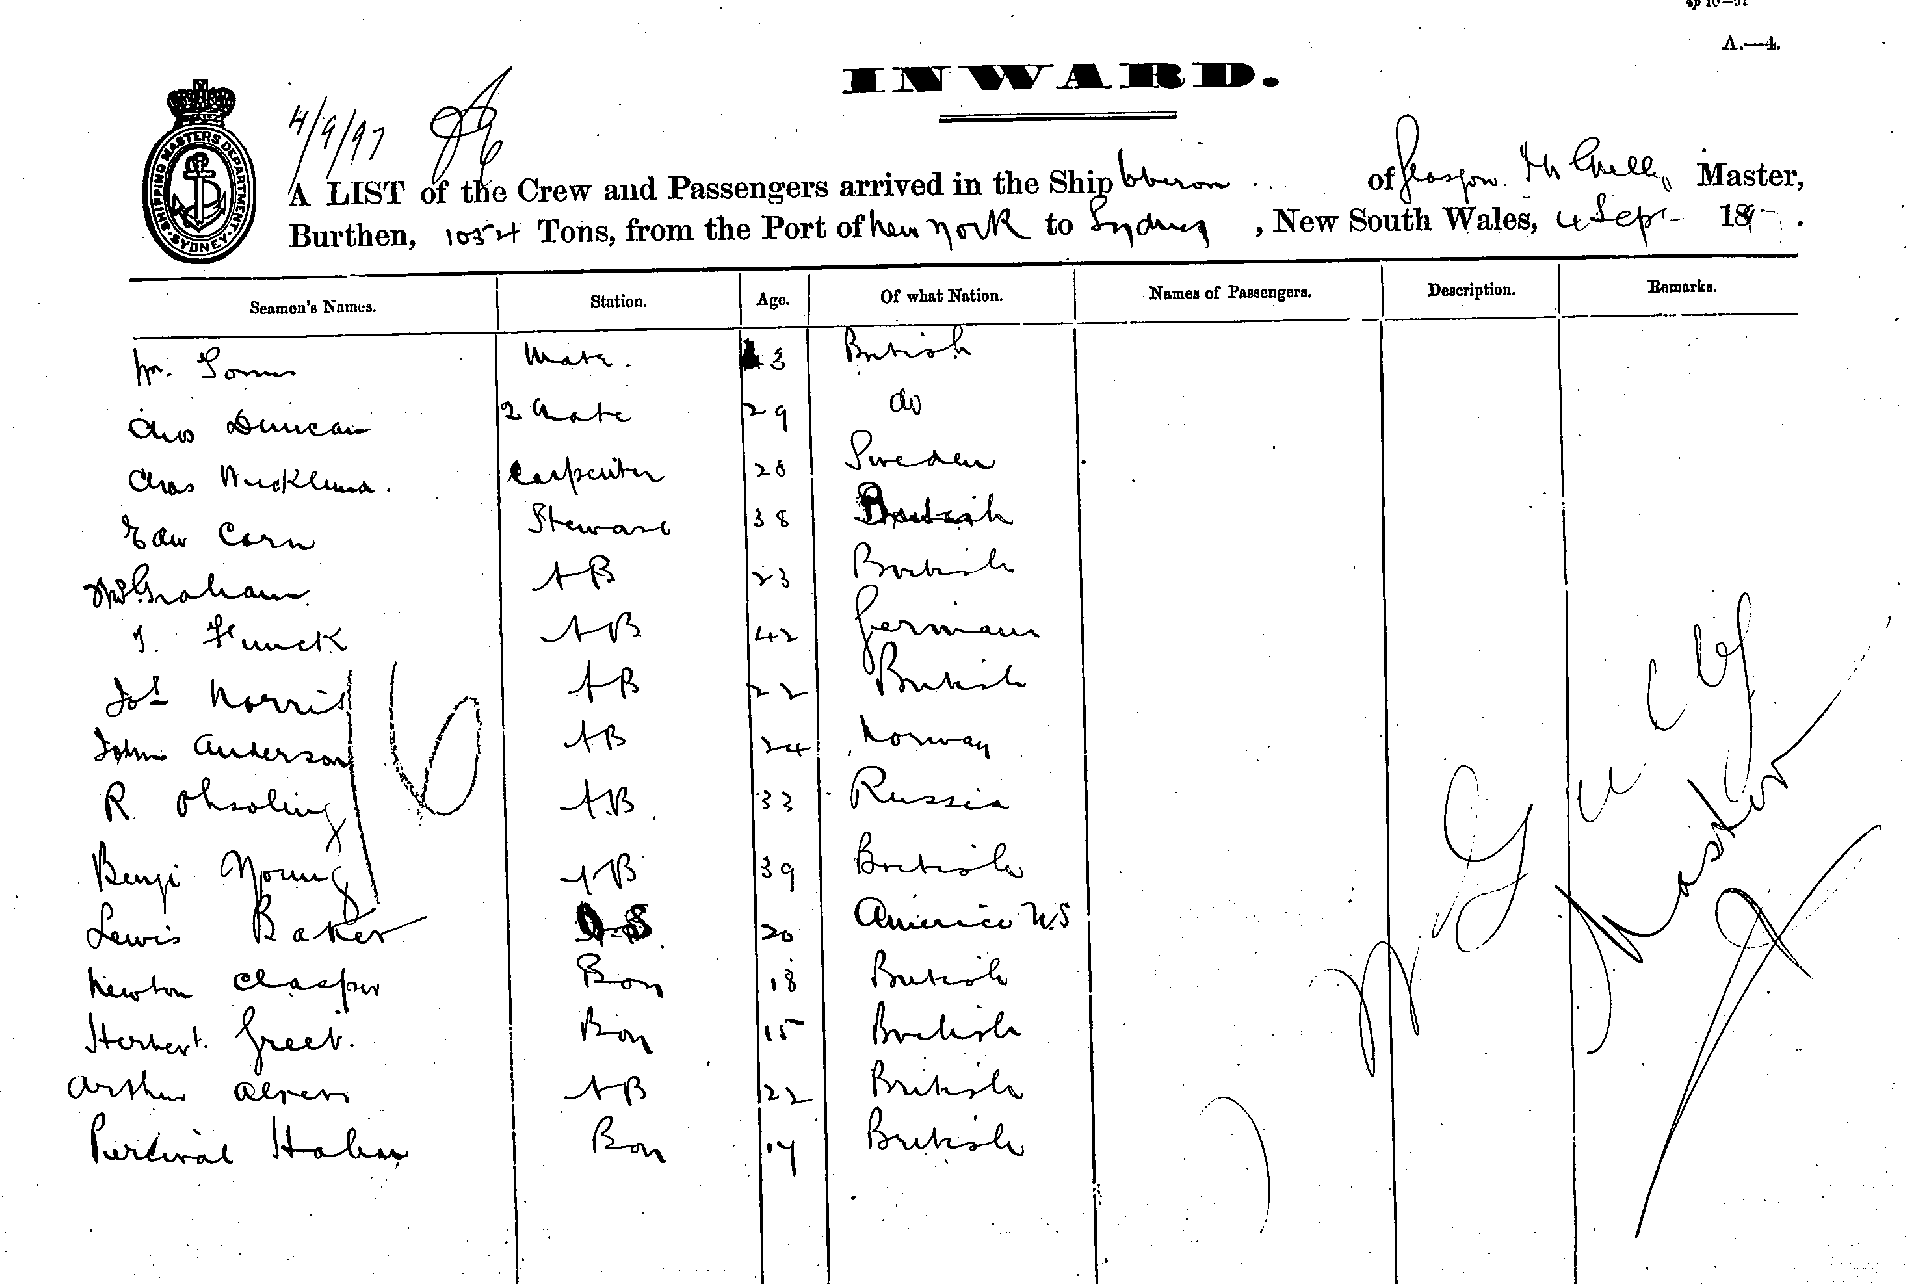 A.—4.
INWARD.
SHIPPING MASTERS DEPARTMENT SYDNEY
4/9/97
A LIST of the Crew and Passengers arrived in the Ship Oberon of Glasgow. Master,
Burthen, 1054 Tons, from the Port of New York to Sydney, New South Wales, 4 Sep 189
Seamen's Names. Station. Age. Of what Nation. Names of Passengers. Description. Remarks.
Mate. 3 British
Chas Duncan 2 Mate 29 do
Chas Carpenter 28 Sweden
Edw Corn Steward 38 British
Graham AB 23 British
Funck AB 42 German
Jos Norris AB 22 British
John Anderson AB 24 Norway
R. Ohsoling AB 33 Russia
Benj Young AB 39 British
Lewis Baker 20 America US
Newton Clasper Boy 18 British
Herbert Greet. Boy 15 British
Arthur AB 22 British
Percival Boy 17 British
Master